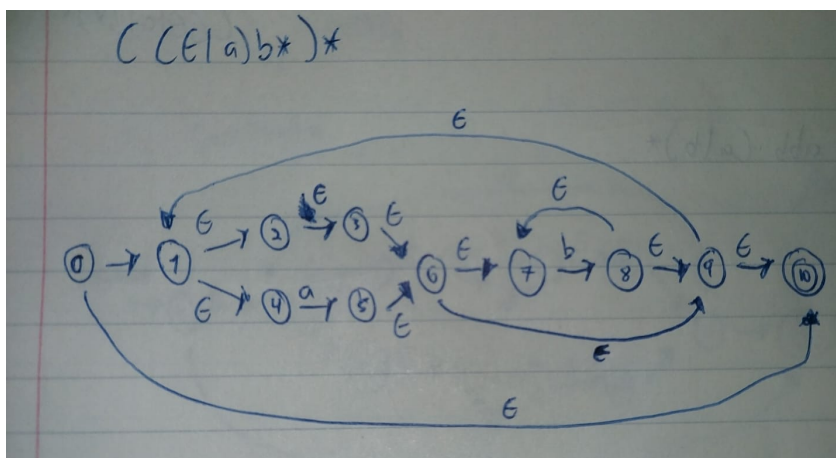 ((ϵ|a)b*)*
ϵ
ϵ ϵ ϵ ϵ
2 3
0 1 6 ϵ 7 b 8 ϵ 9 ϵ 10
ϵ 4 a 5 ϵ
ϵ
ϵ